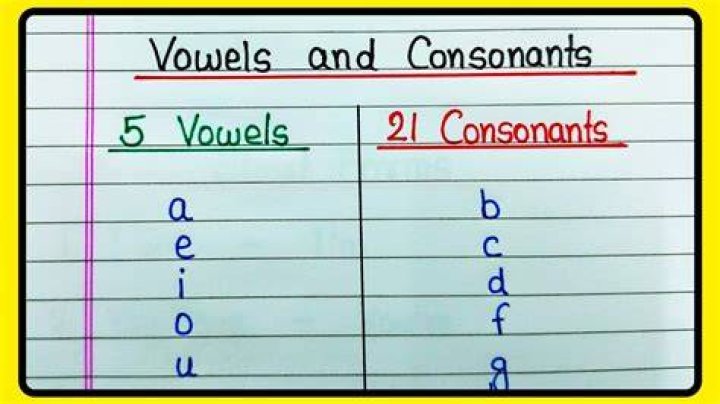 Vowels and Consonants
5 Vowels 21 Consonants
a b
e c
i d
o f
u g